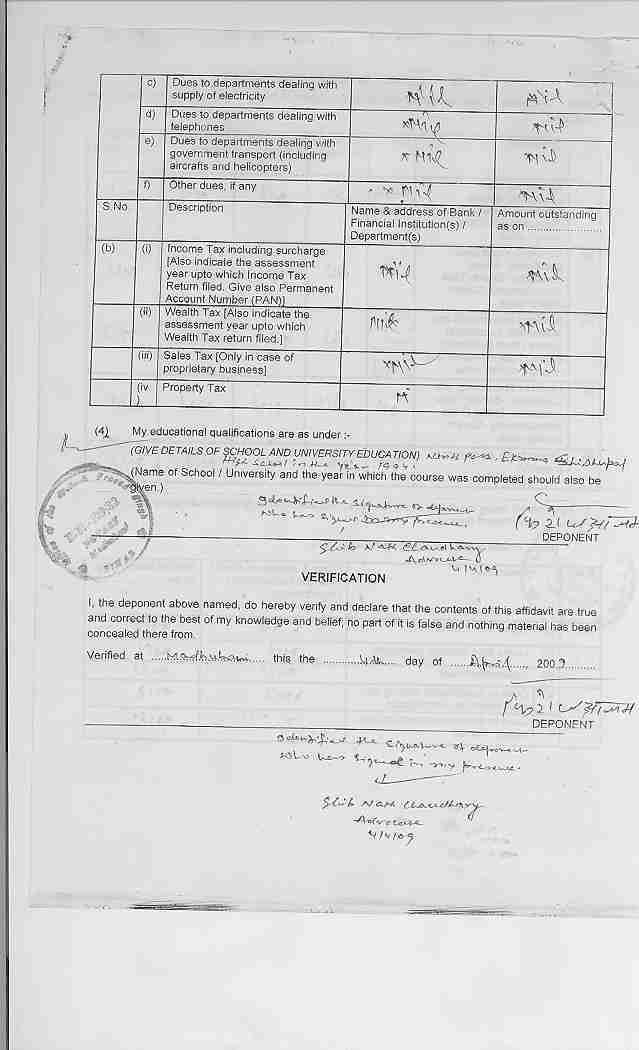 c) Dues to departments dealing with supply of electricity Nil Nil
d) Dues to departments dealing with telephones Nil Nil
e) Dues to departments dealing with government transport (including aircrafts and helicopters) Nil Nil
f) Other dues, if any Nil Nil
S.No Description Name & address of Bank / Financial Institution(s) / Department(s) Amount outstanding as on ........................
(b) (i) Income Tax including surcharge [Also indicate the assessment year upto which Income Tax Return filed. Give also Permanent Account Number (PAN)] Nil Nil
(ii) Wealth Tax [Also indicate the assessment year upto which Wealth Tax return filed.] Nil Nil
(iii) Sales Tax [Only in case of proprietary business] Nil Nil
(iv) Property Tax
(4) My educational qualifications are as under :-
(GIVE DETAILS OF SCHOOL AND UNIVERSITY EDUCATION) Ninth Pass.
High School in the year 1994.
(Name of School / University and the year in which the course was completed should also be
given.)
Identified the signature of deponent
who has signed in my presence.
DEPONENT
Shib Nath Chaudhary
Advocate
4/4/09
VERIFICATION
I, the deponent above named, do hereby verify and declare that the contents of this affidavit are true
and correct to the best of my knowledge and belief, no part of it is false and nothing material has been
concealed there from.
Verified at ......Madhubani...... this the ............4th...... day of ......April......, 2009..........
DEPONENT
Identified the signature of deponent
who has signed in my presence.
Shib Nath Chaudhary
Advocate
4/4/09